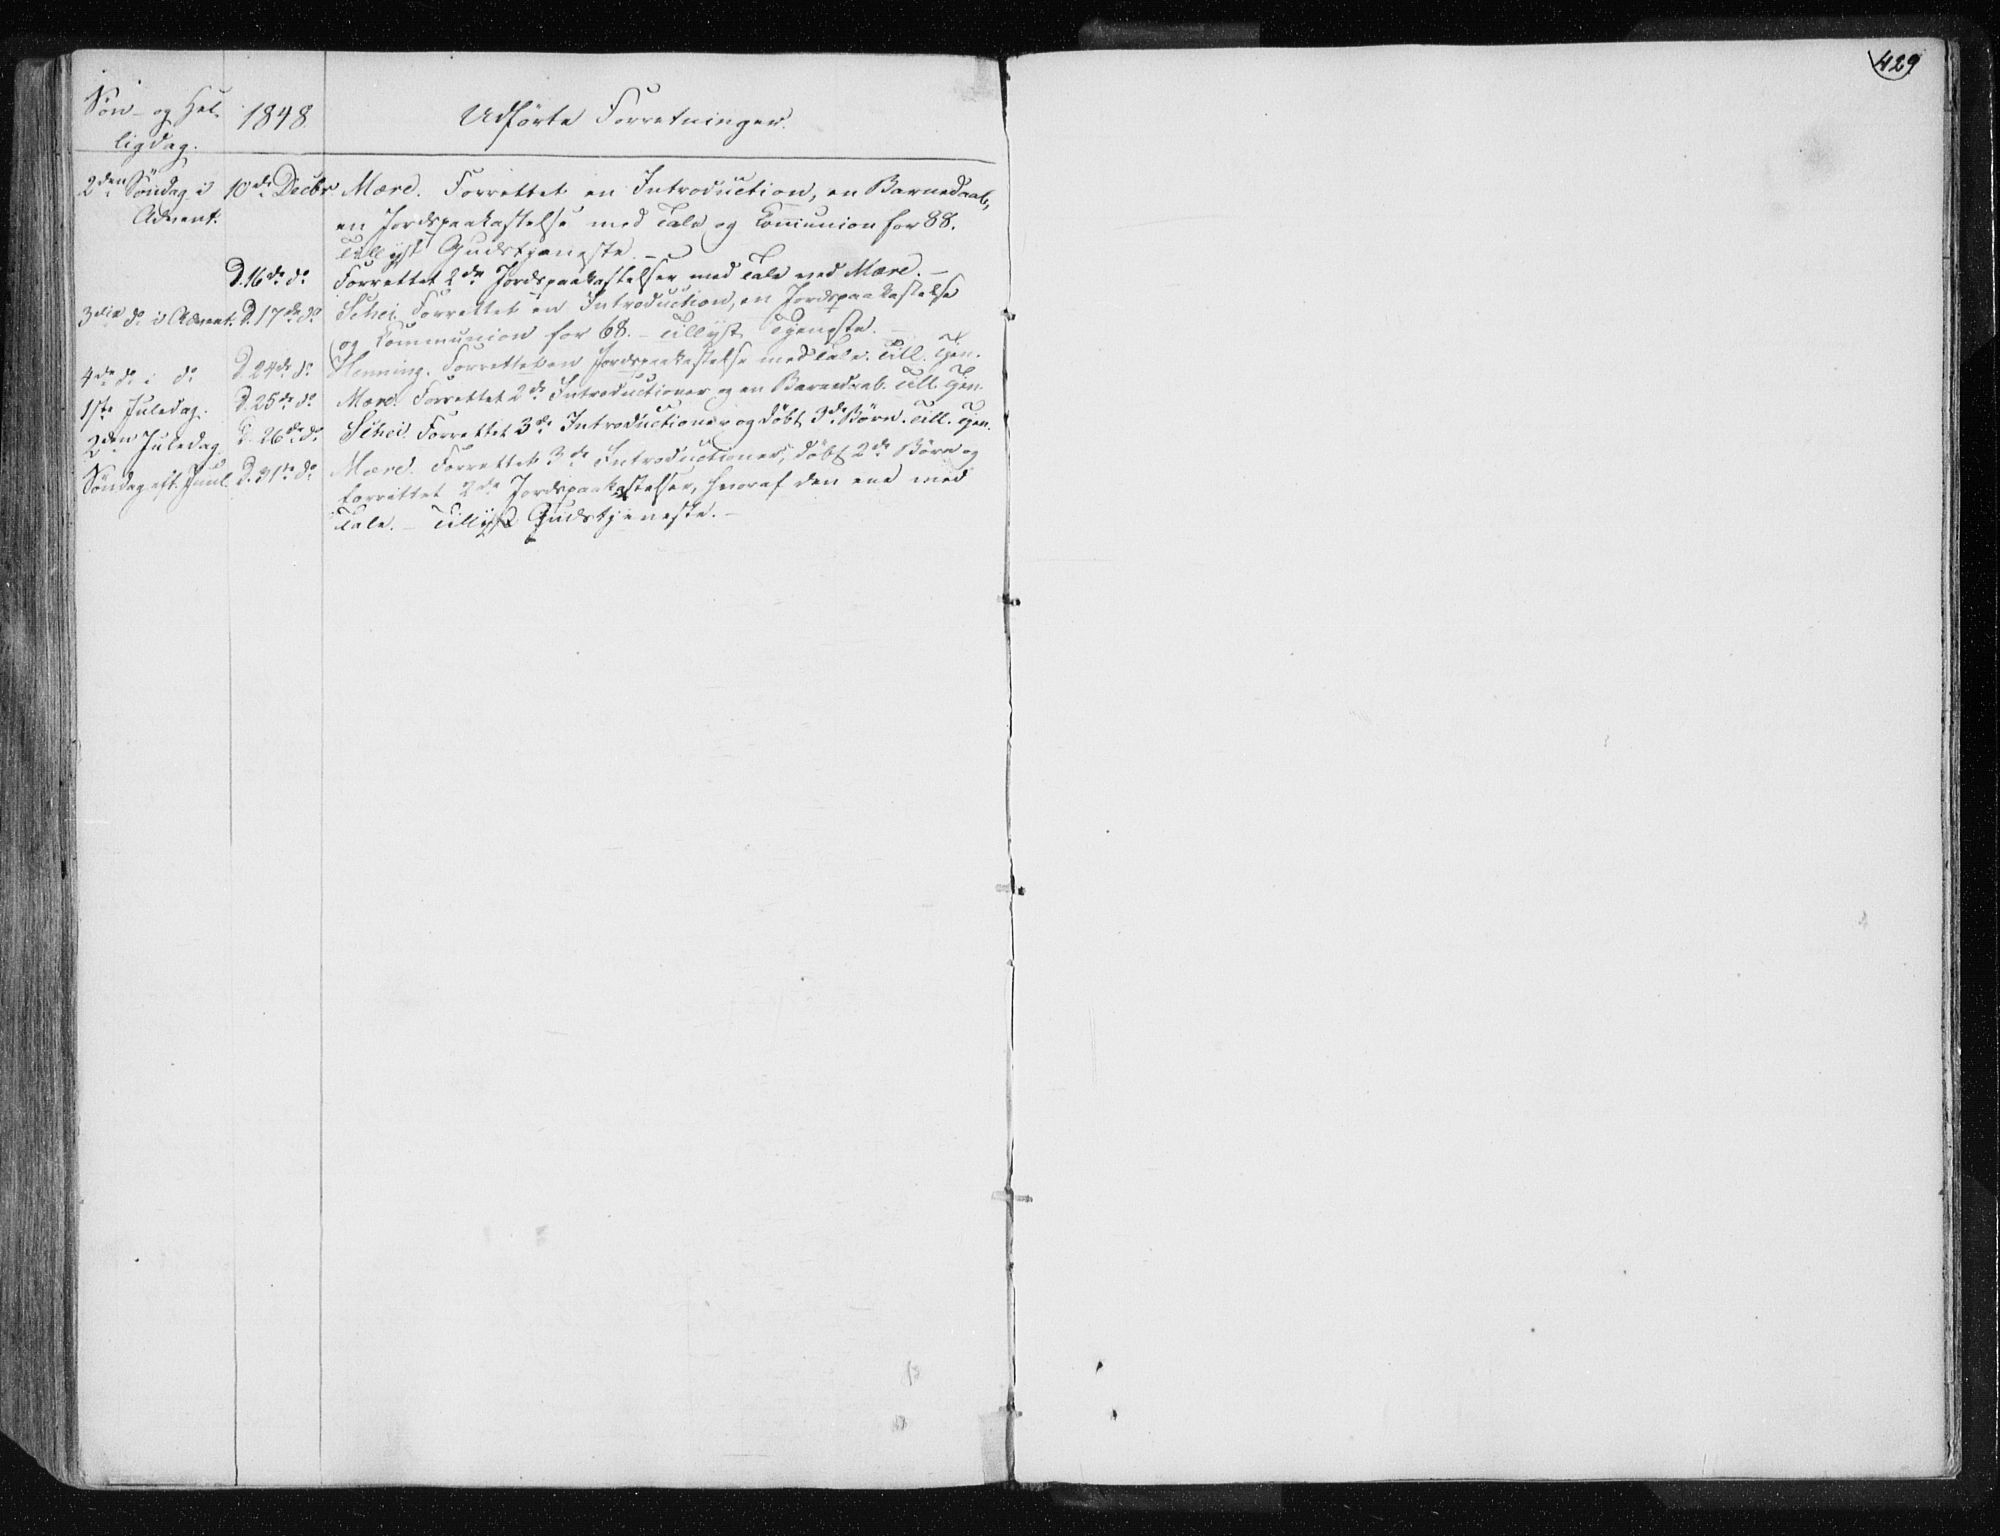 429
Søn- og Hel- 1848. Udførte Forretninger.
ligdag.
2den Søndag i 10de Decbr Mære. Forrettet en Introduction, en Barnedaab,
Advent. en Jordspaakastelse med Tale og Communion for 88.
Tillyst Gudstjeneste. -
D. 16de do Forrettet 2de Jordspaakastelser med Tale ved Mære. -
3die do i Advent. D. 17de do Schei. Forrettet en Introduction, en Jordspaakastelse
og Communion for 68. - Tillyst Tjeneste. -
4de do i do D. 24de do Henning. Forrettet en Jordspaakastelse med Tale. Till. Tjen.
1ste Juledag. D. 25de do Mære. Forrettet 2de Introductioner og en Barnedaab. Till. Tjen.
2den Juledag D. 26de do Schei. Forrettet 3de Introductioner og døbt 3de Børn. Till. Tjen.
Søndag eft. Juul. D. 31te do Mære. Forrettet 3de Introductioner, døbt 2de Børn og
forrettet 2de Jordspaakastelser, hvoraf den ene med
Tale. - Tillyst Gudstjeneste. -